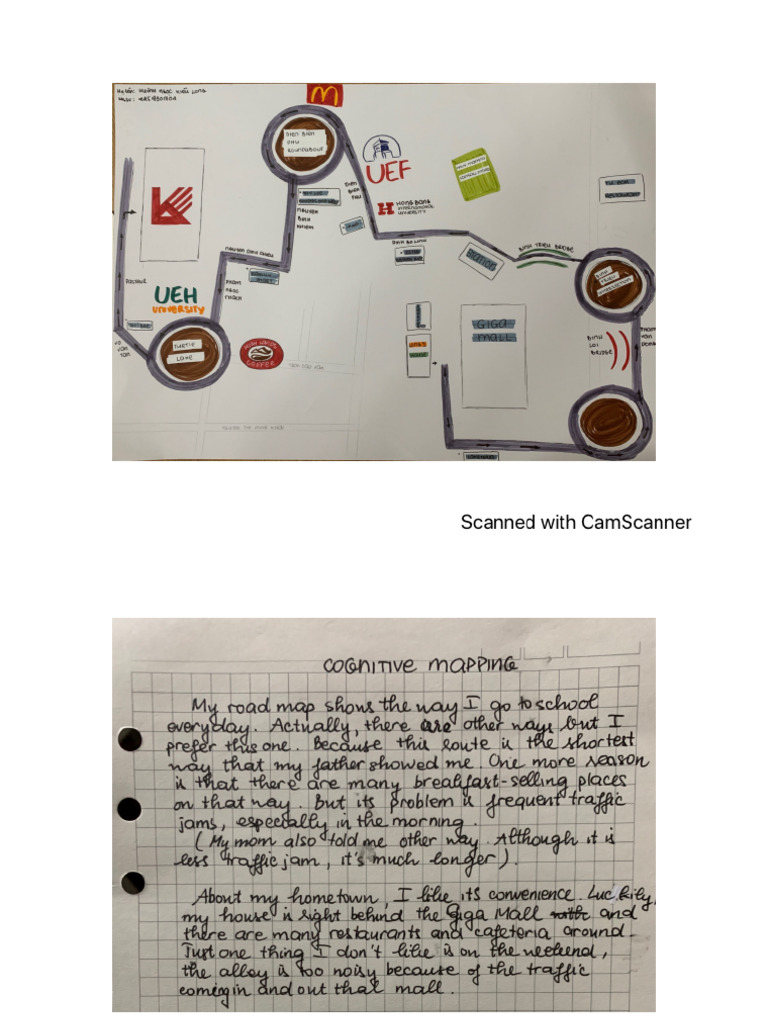 DIEN BIEN
PHU
ROUNDABOUT
UEF
HONG BANG
INTERNATIONAL
UNIVERSITY
DIEN
BIEN
PHU
NGUYEN
BINH
KHIEM
NGUYEN DINH CHIEU
PASTEUR
UEH
UNIVERSITY
TURTLE
LAKE
VO
VAN
TAN
COFFEE
BINH TRIEU BRIDGE
BINH
TRIEU
GIGA
MALL
BINH
LOI
BRIDGE
PHAM
VAN
DONG
Scanned with CamScanner
COGNITIVE MAPPING
My road map shows the way I go to school
everyday. Actually, there are other ways but I
prefer this one. Because this route is the shortest
way that my father showed me. One more reason
is that there are many breakfast-selling places
on that way. But its problem is frequent traffic
jams, especially in the morning.
(My mom also told me other way. Although it is
less traffic jam, it's much longer).
About my hometown, I like its convenience. Luckily,
my house is right behind the Giga Mall and
there are many restaurants and cafeteria around.
Just one thing I don't like is on the weekend,
the alley is too noisy because of the traffic
coming in and out that mall.